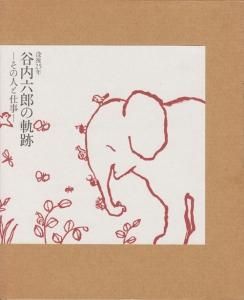 没後25年
谷内六郎の軌跡
—その人と仕事—